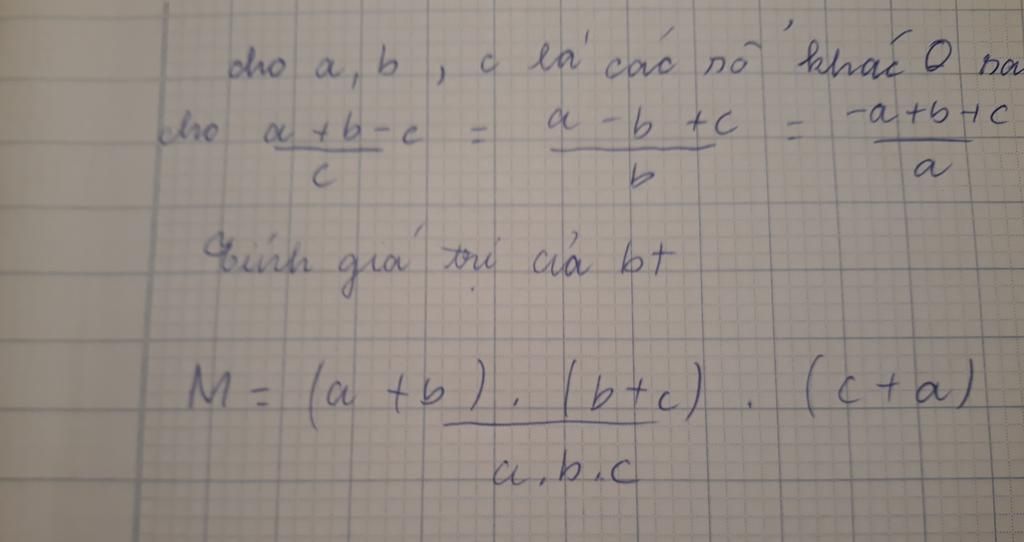 cho a, b, c là các số khác 0 sa
cho a + b - c / c = a - b + c / b = -a + b + c / a
Tính giá trị của bt
M = (a + b) . (b + c) . (c + a) / a . b . c